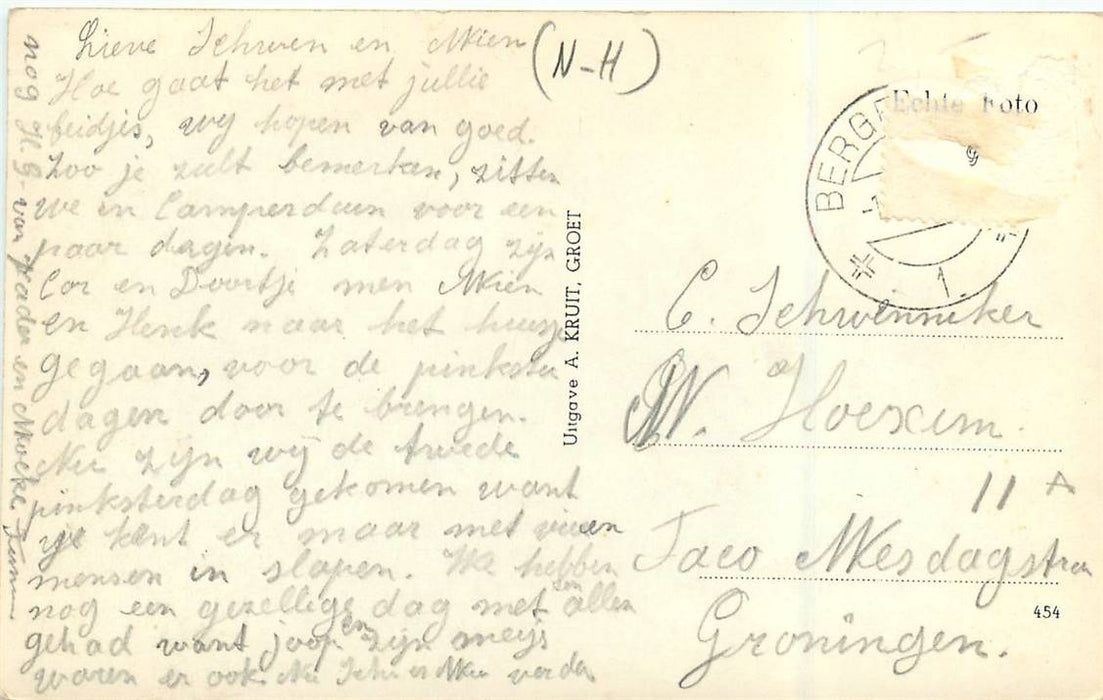 Lieve Schwen en Mien
(N-H)
Hoe gaat het met jullie
beidjes, wij hopen van goed.
Zoo je zult bemerken, zitten
we in Camperduin voor een
paar dagen. Zaterdag zijn
Cor en Doortje men Mien
en Henk naar het huisje
gegaan, voor de pinkster
dagen door te brengen.
Nu zijn wij de twede
pinksterdag gekomen want
je kent er maar met vieren
mensen in slapen. We hebben
nog een gezellige dag met zen allen
gehad want joop en zijn meijs
waren er ook. Nu Schw en Mien verder
nog H.G. van Vader en Moeke
Uitgave A. KRUIT, GROET
Echte Foto
BERGE
1.
C. Schwenneker
W. Hoexum.
11 A
Taco Mesdagstra
454
Groningen.